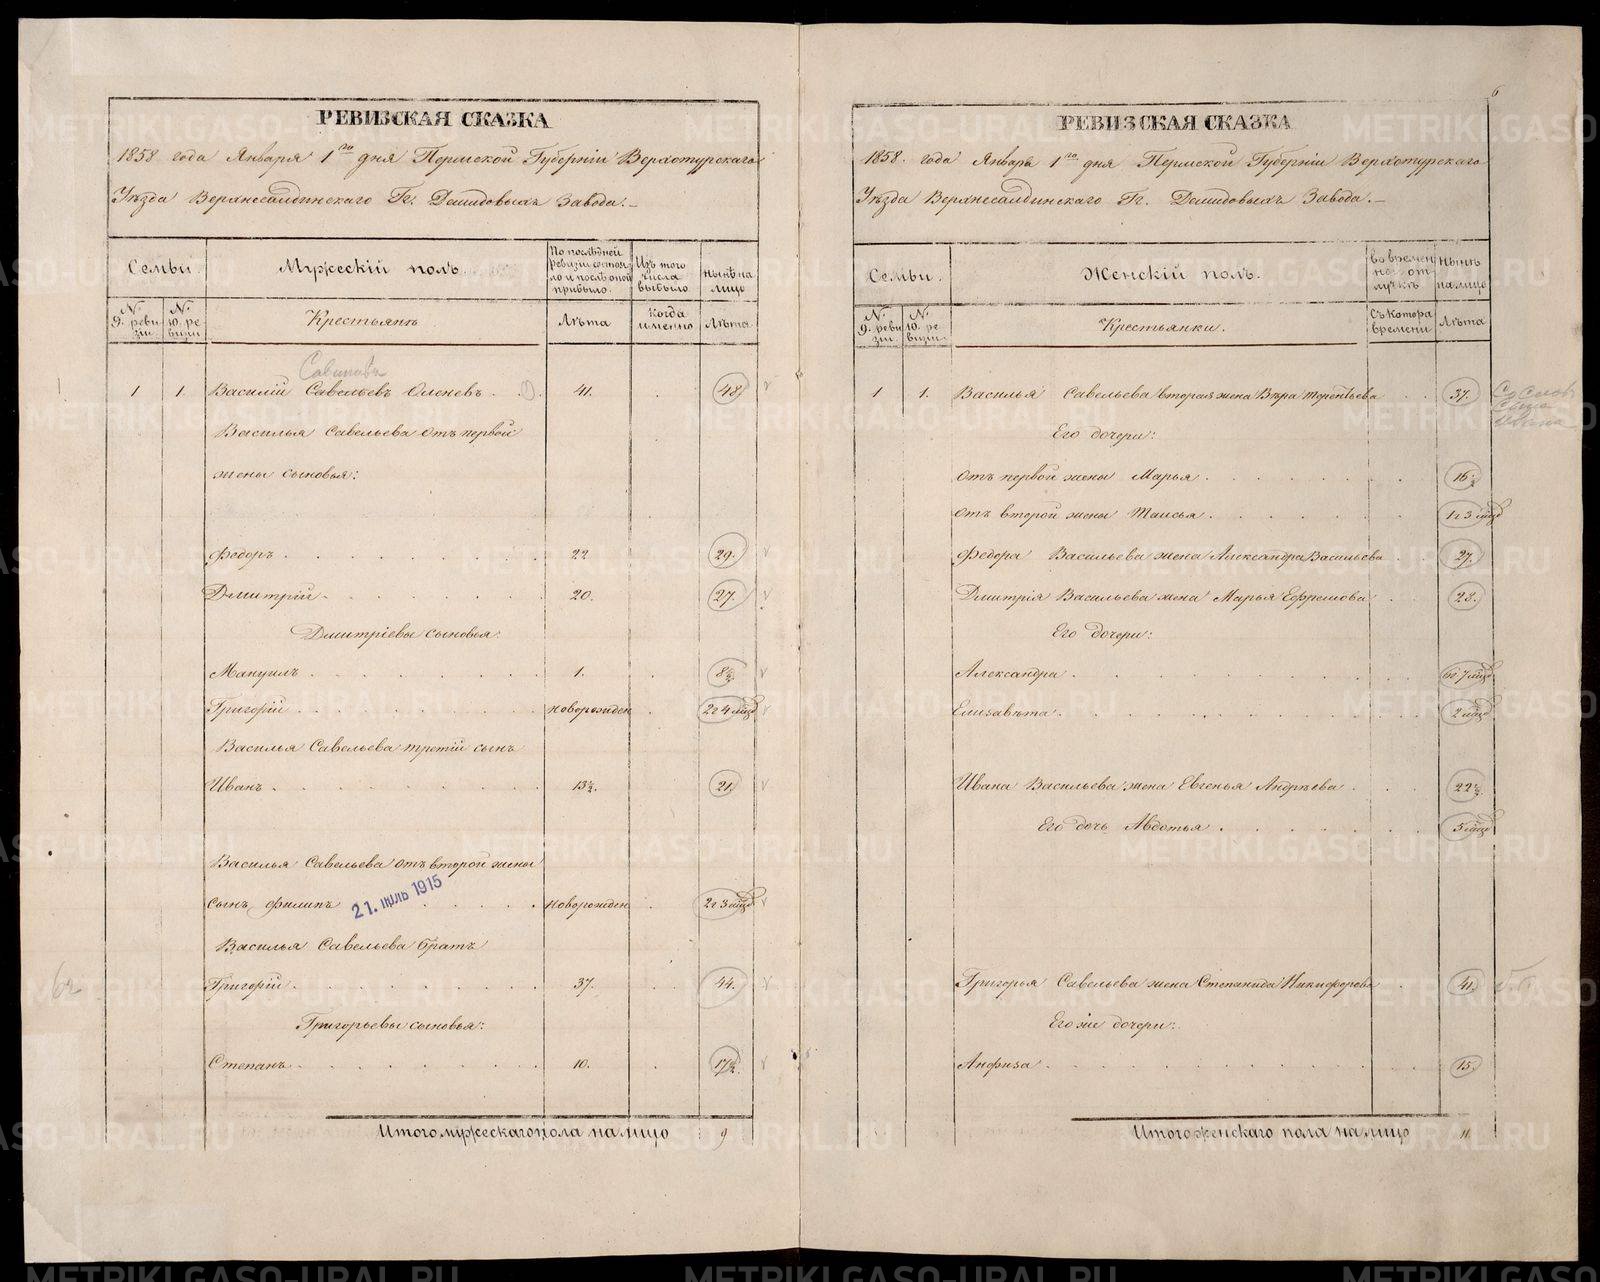 РЕВИЗСКАЯ СКАЗКА
1858 года Января 1го дня Пермской Губерніи Верхотурскаго
Уѣзда Верхнесалдинскаго Гг. Демидовыхъ Завода.
Семьи. Мужескій полъ. По послѣдней ревизіи состояло и послѣ оной прибыло. Изъ того числа выбыло Нынѣ на лицо
№ 9. ревизіи № 10. ревизіи Крестьянъ Лѣта Когда именно Лѣта
1 1. Василій Савельевъ Оленевъ 41. 48
Василья Савельева отъ первой
жены сыновья:
Федоръ 22 29.
Дмитрій 20. 27.
Дмитріевы сыновья:
Мануилъ 1. 8½
Григорій новорожден 2г 4 мѣц
Василья Савельева третій сынъ
Иванъ 13½. 21
Василья Савельева отъ второй жены
сынъ Филипъ новорожден 2г 3 мѣц
21. ІЮЛЬ 1915
Василья Савельева братъ
Григорій 37. 44.
Григорьевы сыновья:
Степанъ 10. 17½.
Итого мужескаго пола на лицо 9
6
РЕВИЗСКАЯ СКАЗКА
1858. года Январь 1го дня Пермской Губерніи Верхотурскаго
Уѣзда Верхнесалдинскаго Гг. Демидовыхъ Завода.
Семьи. Женскій полъ. Во временной отлучкѣ Нынѣ на лицо
№ 9. ревизіи № 10. ревизіи Крестьянки. Съ котора времени Лѣта
1 1. Василья Савельева вторая жена Вѣра Терентьева 37.
Его дочери:
отъ первой жены Марья 16½
отъ второй жены Таисья 1г 3 мѣц
Федора Васильева жена Александра Васильева 27.
Дмитрія Васильева жена Марья Ефремова 28.
Его дочери:
Александра 6г 7 мѣц
Елизавѣта 2 мѣц
Ивана Васильева жена Евгенья Андрѣева 22½.
Его дочь Авдотья 5 мѣц
Григорья Савельева жена Степанида Никифорова 41.
Его же дочери:
Анфиза 15.
Итого женскаго пола на лицо 11
METRIKI.GASO-URAL.RU